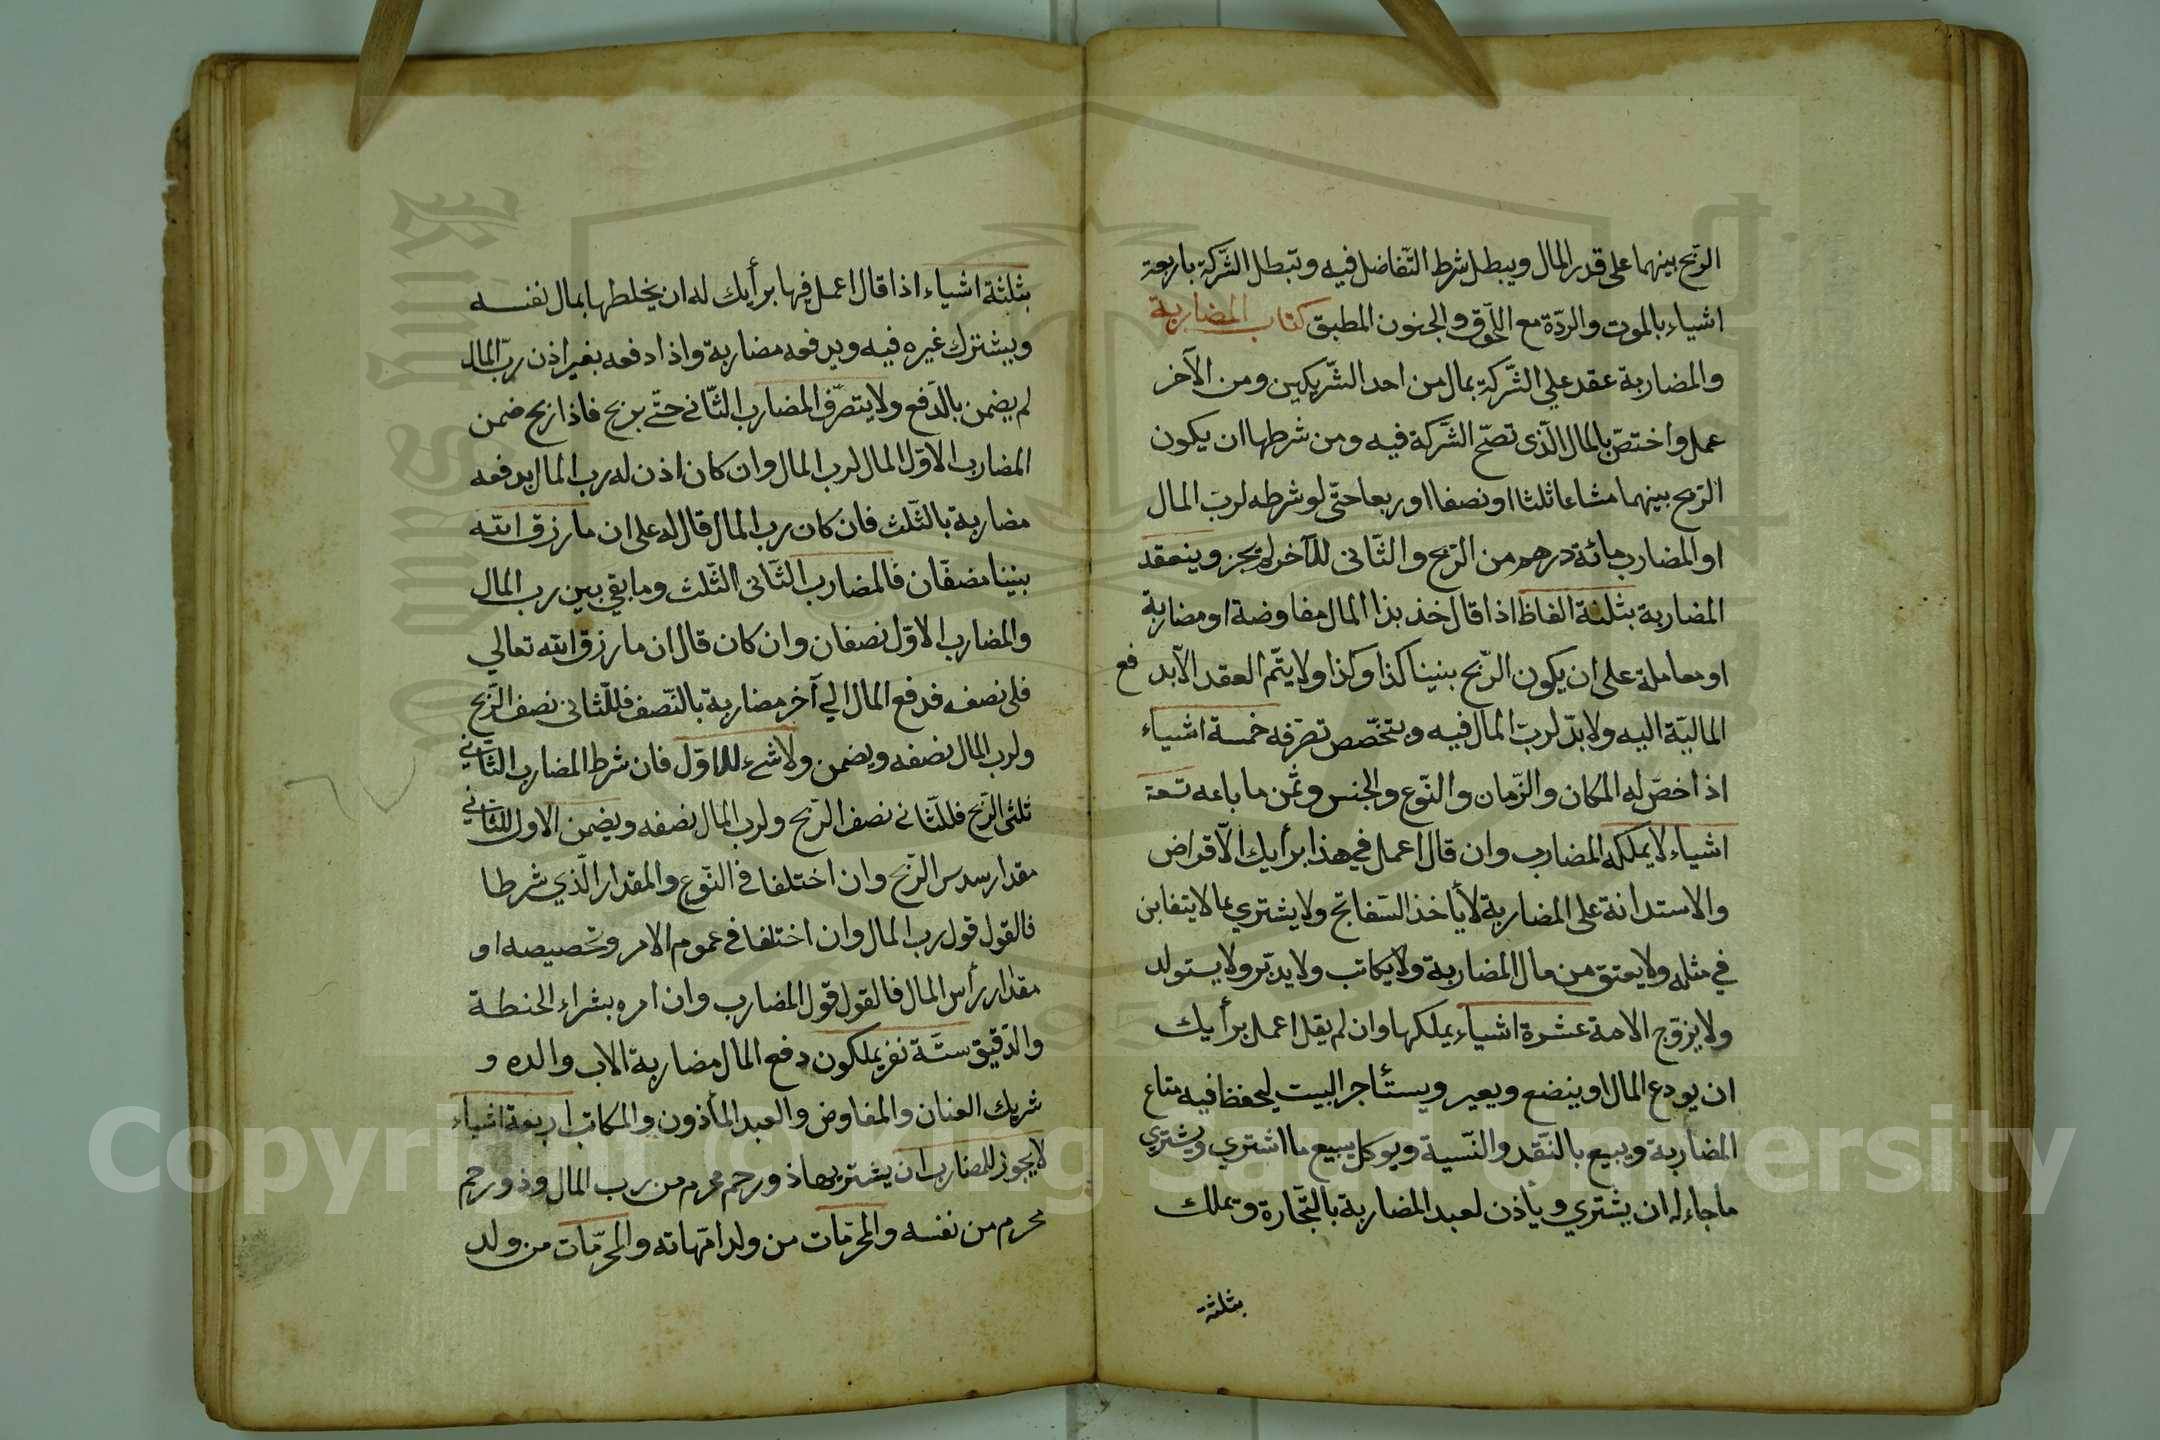 الرّبح بينهما على قدر المال ويبطل شرط التّفاضل فيه وتبطل الشّركة باربعة
اشياء بالموت والردّة مع اللّحوق والجنون المطبق كتاب المضاربة
والمضاربة عقد علي الشّركة بمال من احد الشّريكين ومن الآخر
عمل واختصّ بالمال الّذى تصحّ الشّركة فيه ومن شرطها ان يكون
الرّبح بينهما مشاعا ثلثا او نصفا او ربعا حتّى لو شرطه لربّ المال
او المضارب مائة درهم من الرّبح والثّانى للآخر لم يجز وينعقد
المضاربة بثلثة الفاظ اذا قال خذ بذا المال مفاوضة او مضاربة
او معاملة على ان يكون الرّبح بيننا كذا وكذا ولا يتّم العقد الّا بدفع
الماليّة اليه ولا بدّ لربّ المال فيه ويتخصّص تصرّفه خمسة اشياء
اذا خصّ له المكان والزّمان والنّوع والجنس وثمن ما باعه تسعة
اشياء لا يملكه المضارب وان قال اعمل في هذا برأيك الّاقراض
والاستدانة على المضاربة لا يأخذ السّفاتج ولا يشتري بما لا يتغابن
في مثله ولا يعتق من مال المضاربة ولا يكاتب ولا يدبّر ولا يستولد
ولا يزوّج الامة عشرة اشياء يملكها وان لم يقل اعمل برأيك
ان يودع المال او يبضع ويعير ويستأجر البيت ليحفظ فيه متاع
المضاربة ويبيع بالنّقد والنّسية ويوكل يبيع ما اشتري ويشتري
ما جاء له ان يشتري ويأذن لعبد المضاربة بالتّجارة ويملك
بثلثة
بثلثة اشياء اذا قال اعمل فيها برأيك له ان يخلطها بمال نفسه
ويشترك غيره فيه ويدفعه مضاربة واذا دفعه بغير اذن ربّ المال
لم يضمن بالدّفع ولا يتصرّف المضارب الثّانى حتّى يربح فاذا ربح ضمن
المضارب الاوّل المال لرب المال وان كان اذن له رب المال بدفعه
مضاربة بالثّلث فان كان رب المال قال له على ان ما رزق الله
بيننا مضفّان فالمضارب الثّانى الثّلث وما بقي بين رب المال
والمضارب الاوّل نصفان وان كان قال ان ما رزق الله تعالي
فلى نصفه فدفع المال الي آخر مضاربة بالنّصف فللثّانى نصف الرّبح
ولرب المال نصفه ويضمن ولا شئ للاوّل فان شرط المضارب الثّاني
ثلثى الرّبح فللثّانى نصف الرّبح ولرب المال نصفه ويضمن الاول للثّاني
مقدار سدس الرّبح وان اختلفا فى النّوع والمقدار الّذي شرطا
فالقول قول رب المال وان اختلفا فى عموم الامر وتخصيصه او
مقدار رأس المال فالقول قول المضارب وان امره بشراء الحنطة
والدّقيق ستّة نفر يملكون دفع المال مضاربة الاب والده و
شريك العنان والمفاوض والعبد المأذون والمكاتب اربعة اشياء
لا يجوز للمضارب ان يشتر بها ذو رحم محرم من رب المال وذو رحم
محرم من نفسه والمحرّمات من ولد امّهاته والمحرّمات من ولد
Copyright © King Saud University
King Saud University
1957